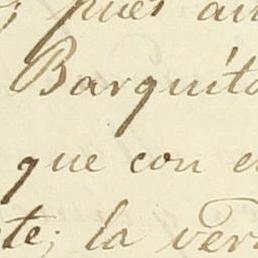 ; pues au
Barquito
que con e
te; la ver